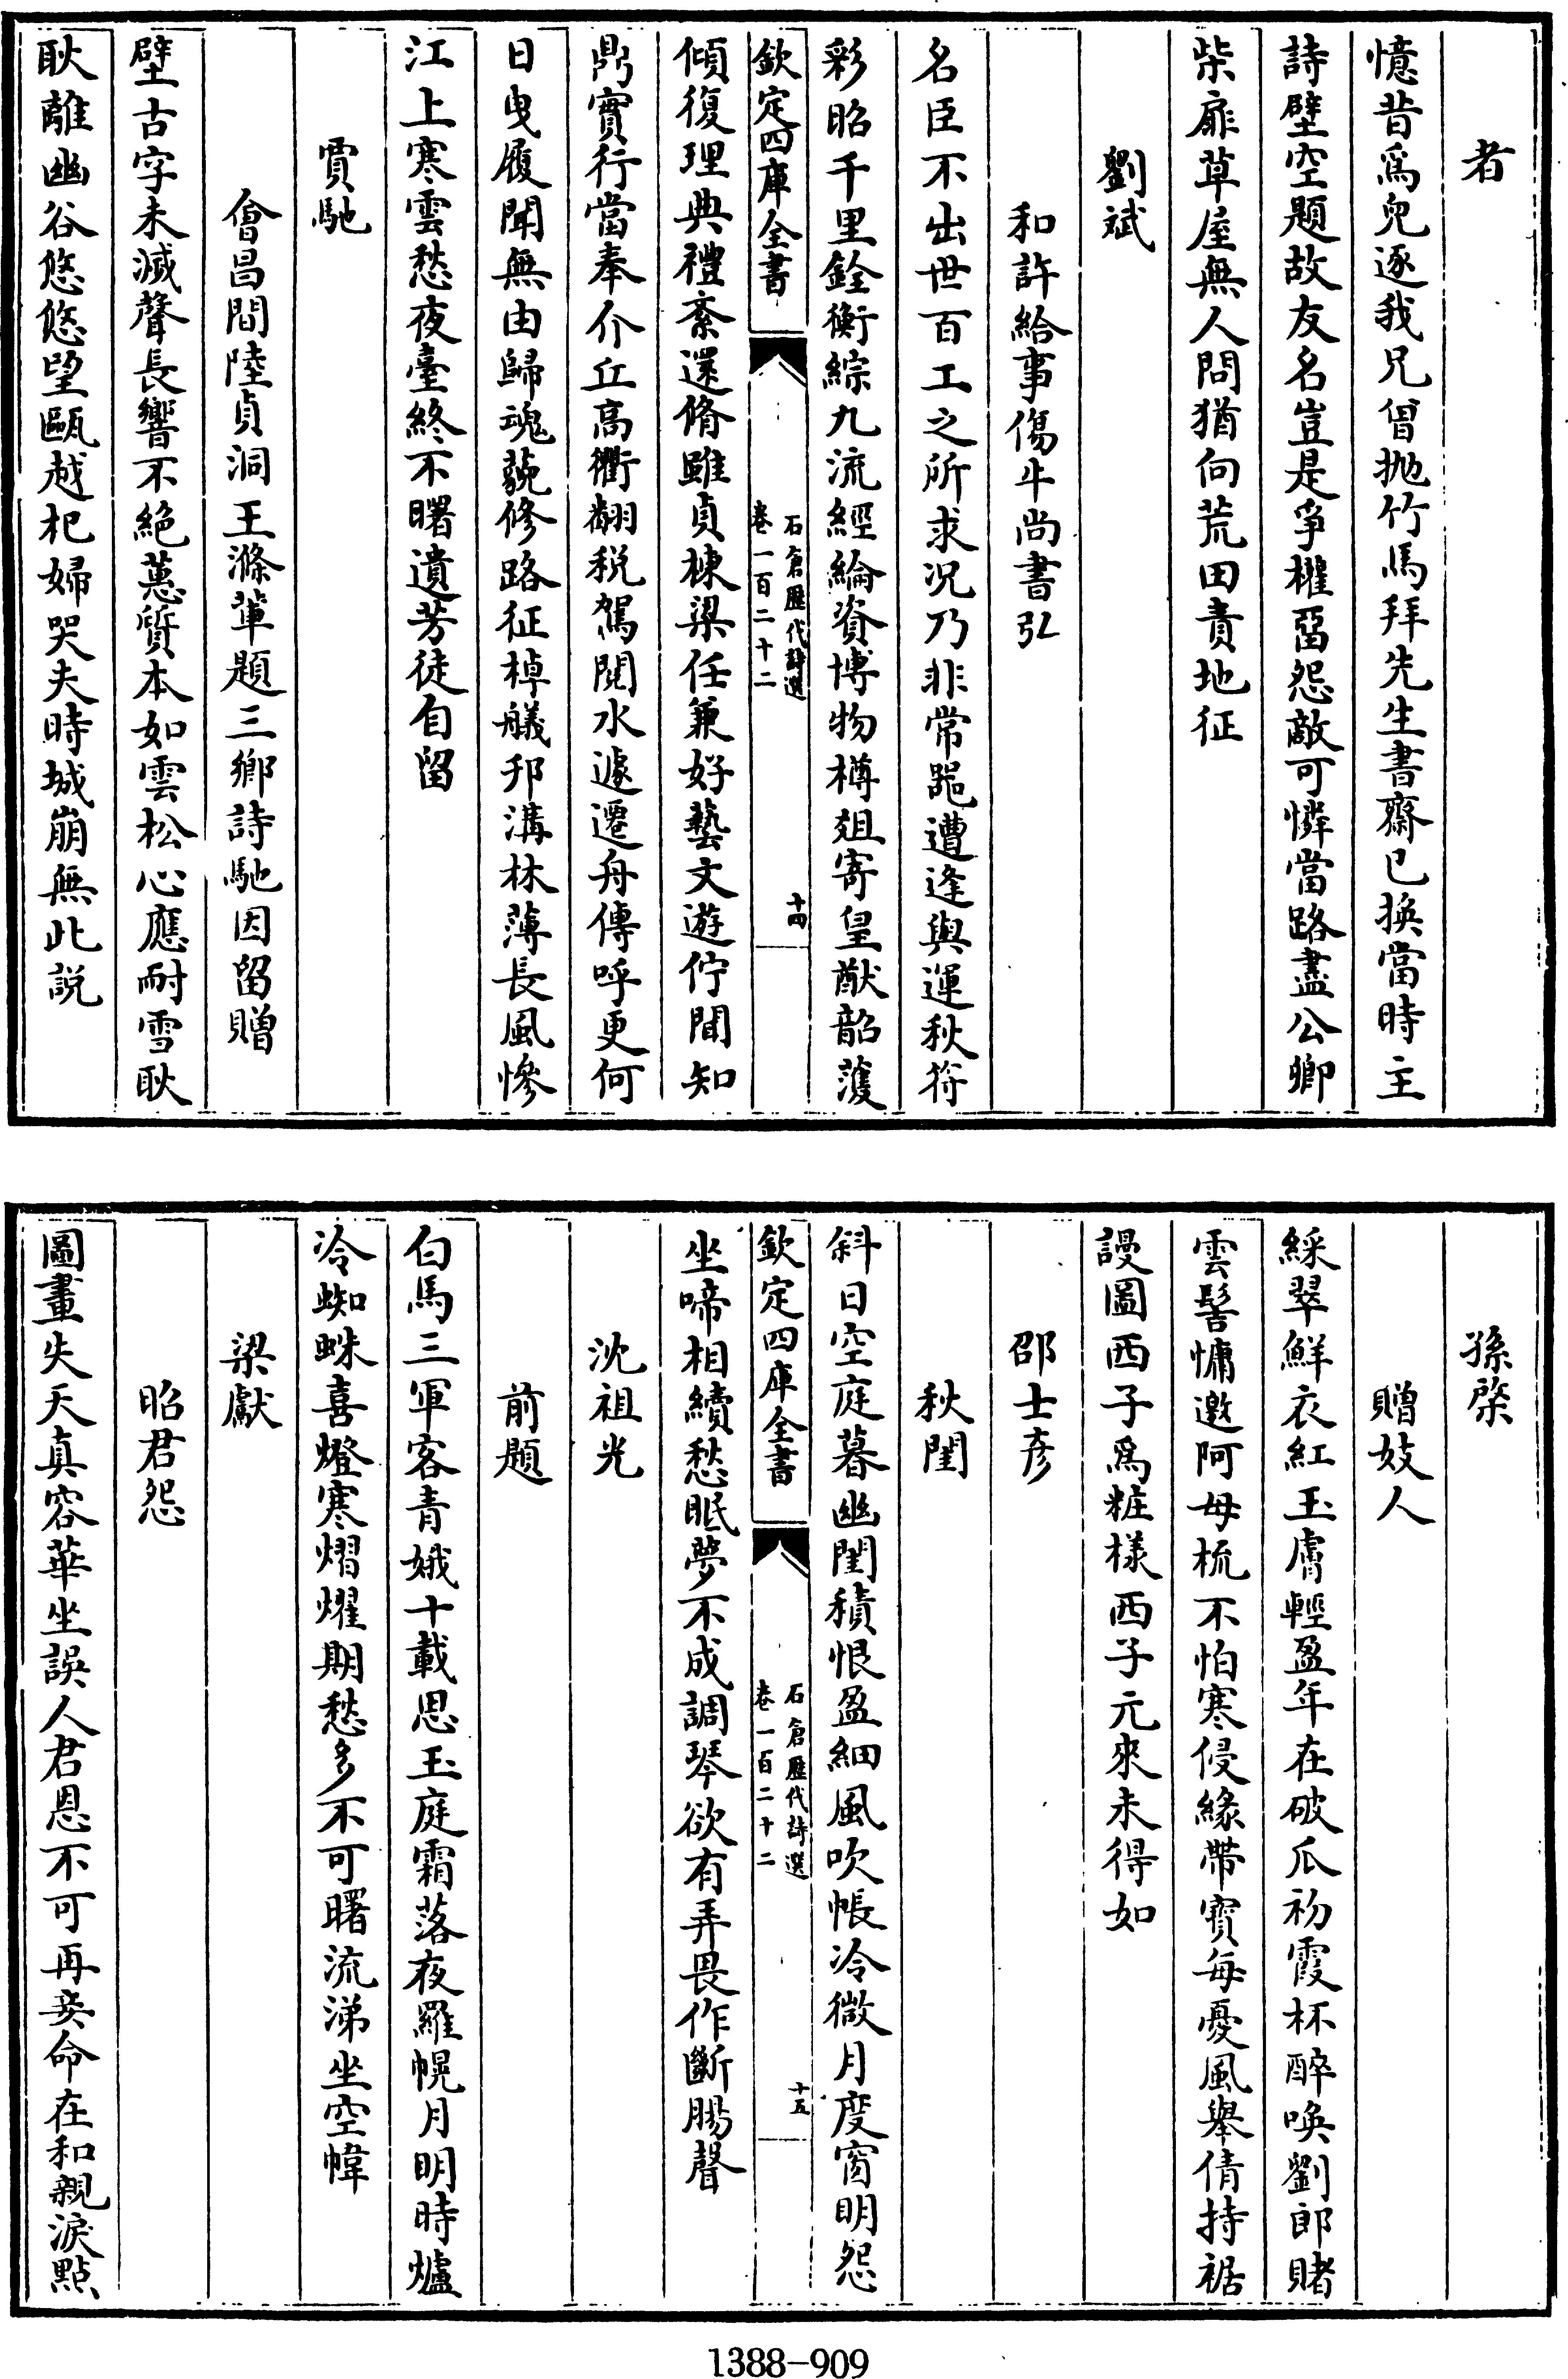 者
憶昔爲兒逐我兄曽抛竹馬拜先生書齋已換當時主
詩壁空題故友名豈是爭權留怨敵可憐當路盡公卿
柴扉草屋無人問猶向荒田責地征
劉斌
和許給事傷牛尚書弘
名臣不出世百工之所求况乃非常器遭逢與運秋符
彩昭千里銓衡綜九流經綸資博物樽俎寄皇猷韶濩
欽定四庫全書
石倉歷代詩選
卷一百二十二
十四
傾復理典禮紊還脩雖貞棟梁任兼好藝文遊佇聞知
鼎實行當奉介丘高衢翻税駕閲水遽遷舟傳呼更何
日曳履聞無由歸魂藐修路征棹艤邗溝林薄長風慘
江上寒雲愁夜臺終不曙遺芳徒自留
賈馳
會昌間陸貞洞王滌軰題三鄉詩馳因留贈
壁古字未滅聲長響不絶蕙質本如雲松心應耐雪耿
耿離幽谷悠悠望甌越杞婦哭夫時城崩無此説
孫棨
贈妓人
綵翠鮮衣紅玉膚輕盈年在破瓜初霞杯醉喚劉郎賭
雲髻慵邀阿母梳不怕寒侵緣帶寶每憂風舉倩持裾
謾圖西子爲粧樣西子元來未得如
邵士彦
秋閨
斜日空庭暮幽閨積恨盈細風吹帳冷微月度窗明怨
欽定四庫全書
石倉歷代詩選
卷一百二十二
十五
坐啼相續愁眠夢不成調琴欲有弄畏作斷腸聲
沈祖光
前題
白馬三軍客青娥十載思玉庭霜落夜羅幌月明時爐
冷蜘蛛喜燈寒熠燿期愁多不可曙流涕坐空幃
梁獻
昭君怨
圖畫失天真容華坐誤人君恩不可再妾命在和親淚點
1388-909